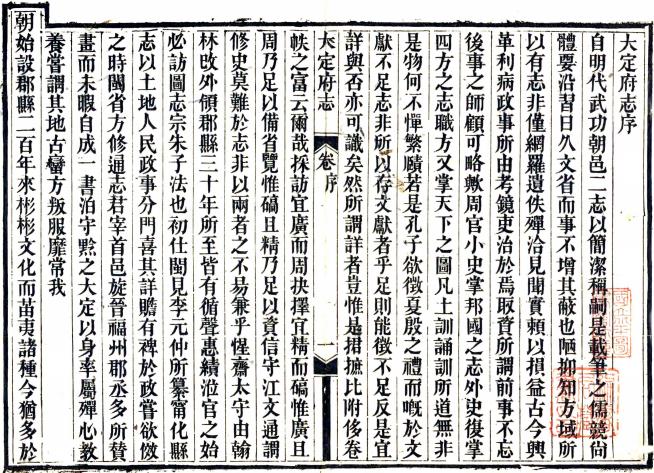 大定府志序
自明代武功朝邑二志以簡潔稱嗣是載筆之儒競尚
體要沿習日久文省而事不增其蔽也陋抑知方域所
以有志非僅網羅遺佚殫洽見聞實賴以損益古今興
革利病政事所由考鏡吏治於焉取資所謂前事不忘
後事之師顧可略歟周官小史掌邦國之志外史復掌
四方之志職方又掌天下之圖凡土訓誦訓所道無非
是物何不憚繁賾若是孔子欲徵夏殷之禮而嘅於文
獻不足志非所以存文獻者乎足則能徵不足反是宜
詳與否亦可識矣然所謂詳者豈惟是捃摭比附侈卷
大定府志
卷序
一
帙之富云爾哉採訪宜廣而周抉擇宜精而確惟廣且
周乃足以備省覽惟確且精乃足以資信守江文通謂
修史莫難於志非以兩者之不易兼乎惺齋太守由翰
林改外領郡縣三十年所至皆有循聲惠績涖官之始
必訪圖志宗朱子法也初仕閩見李元仲所纂甯化縣
志以土地人民政事分門喜其詳贍有裨於政嘗欲倣
之時閩省方修通志君宰首邑旋晉福州郡丞多所贊
畫而未暇自成一書洎守黔之大定以身率屬殫心教
養嘗謂其地古蠻方叛服靡常我
朝始設郡縣二百年來彬彬文化而苗夷諸種今猶多於